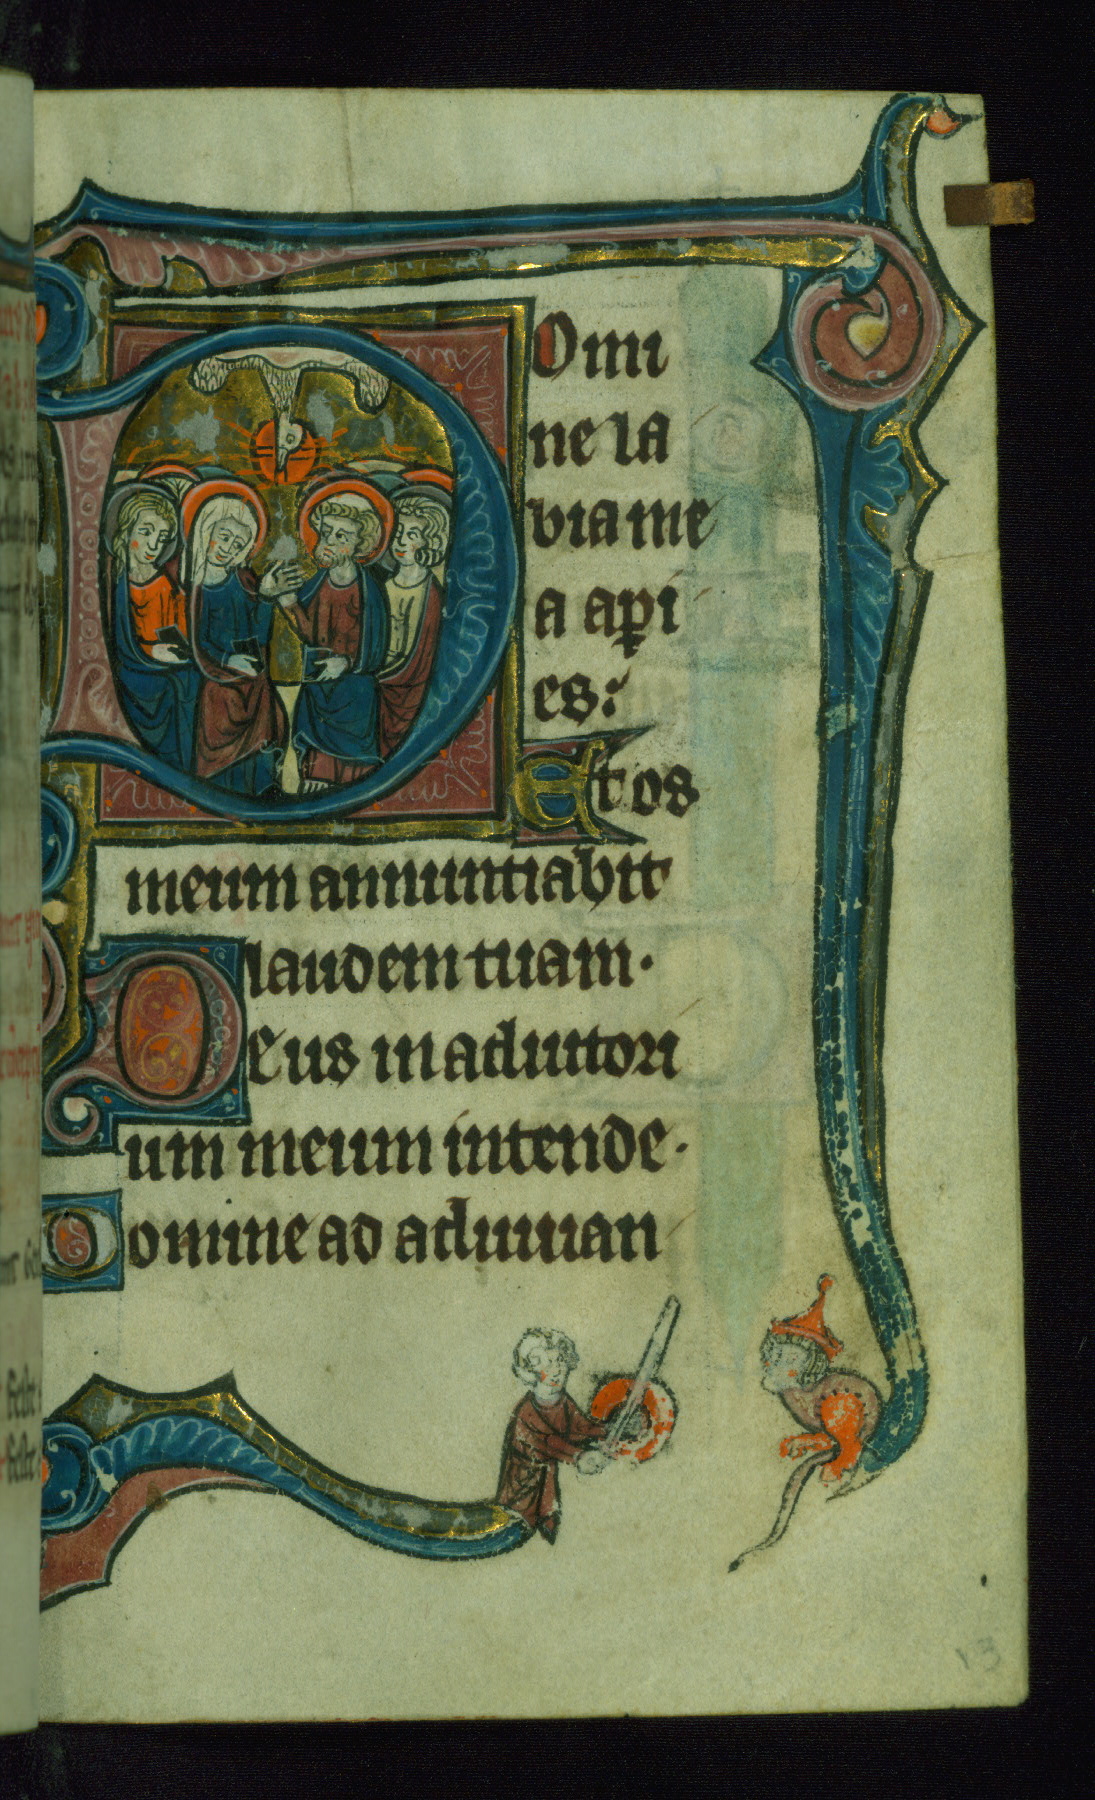 Domi
ne la
bia me
a aperi
es:
Et os
meum annuntiabit
laudem tuam.
Deus in adiutori
um meum intende.
Domine ad adiuuan
13